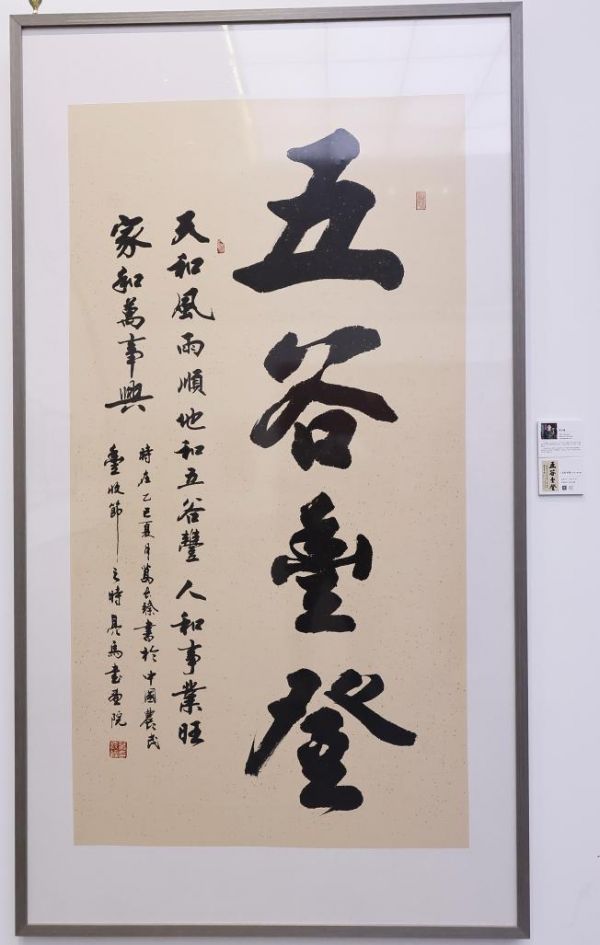 五谷豐登
天和風雨順地和五谷豐人和事業旺
家和萬事興
時在乙巳夏月萬書於中國農民
豐收節之時馬書畫院